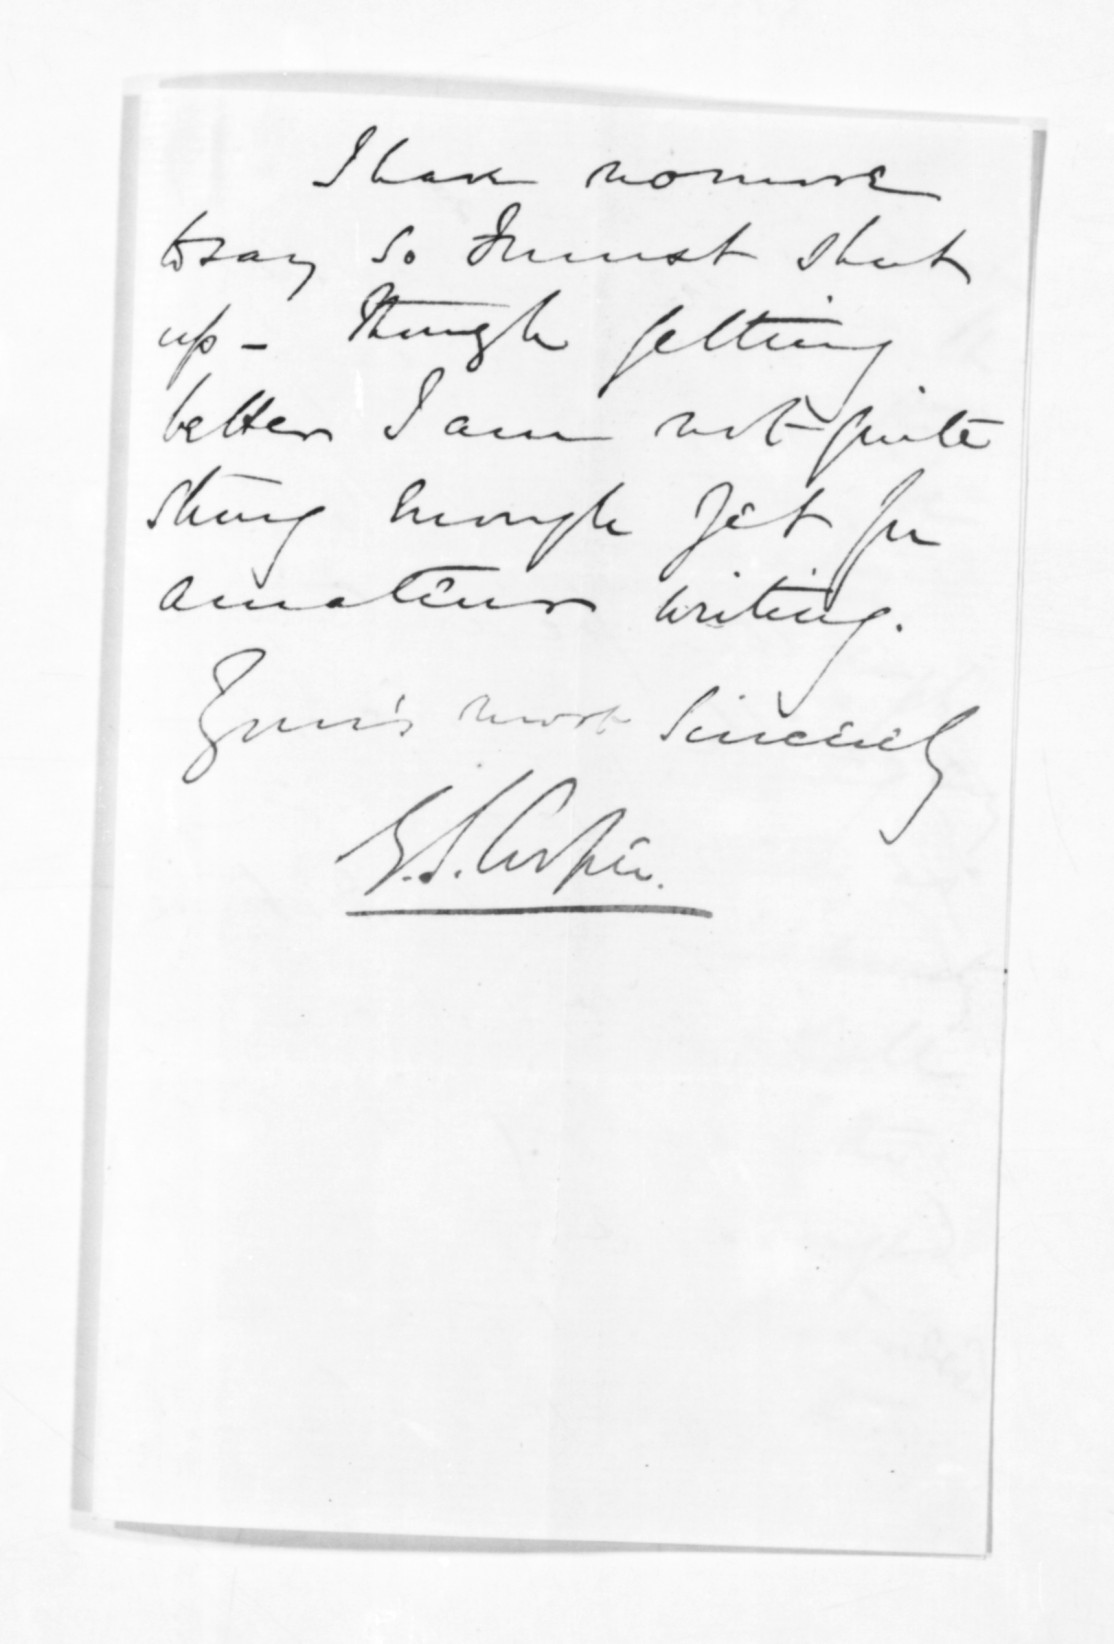 I have no more
to say so I must shut
up - Though getting
better I am not quite
strong enough yet for
amateur writing.
Yours most sincerely
G. S. Cooper.